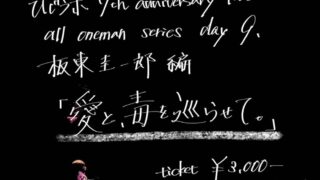 7th anniversary
all oneman series day 9.
板東圭一郎 編
「愛と、毒を巡らせて。」
ticket ¥3,000-